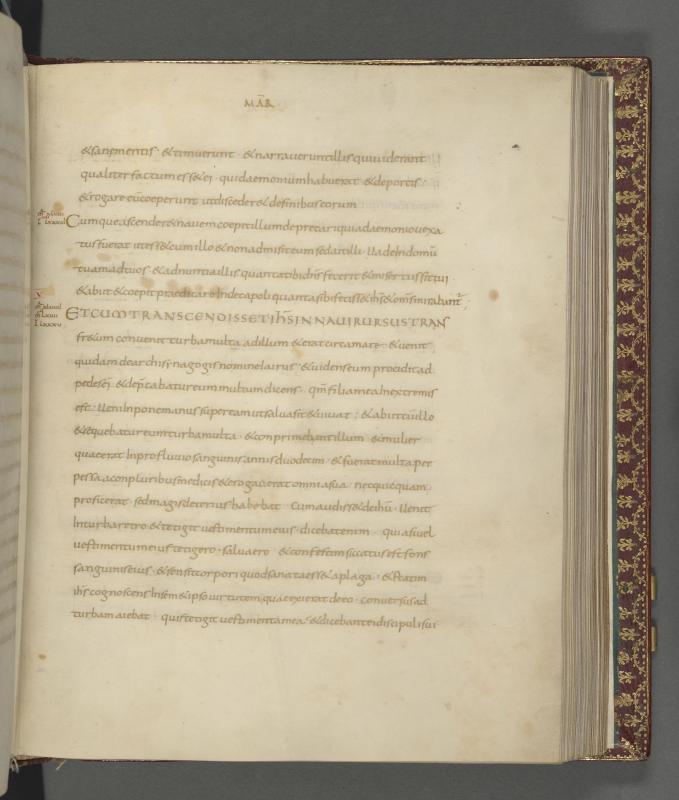 MAR̄
& sanę mentis · & timuerunt · & narraverunt illis qui viderant
qualiter factum ess& ei · qui daemonium habuerat & de porcis ·
& rogare eū coeperunt ut disceder& de finibus eorum
Cumque ascender& navem coepit illum deprecari qui a daemonio vexa
tus fuerat ut ess& cum illo & non admisit eum sed ait illi · Vade In domū
tuam ad tuos · & adnuntia illis quanta tibi dn̄s fecerit & misertus sit tui ·
& abiit & coepit praedicare In decapoli quanta sibi feciss& ih̄s & om̄s mirabantᷣ ;
ET CUM TRANSCENDISSET IH̄S IN NAVI RURSUS TRANS
fr&um convenit turba multa ad illum & erat circa mare · & venit
quidam de archisynagogis nomine Iairus · & videns eum procidit ad
pedes eī · & dep̄cabatur eum multum dicens · qm̄ filia mea In extremis
est · Veni Inpone manus super eam ut salva sit & vivat ; & abiit cū illo
& sequebatur eum turba multa · & conprimebant illum & mulier
quae erat In profluvio sanguinis annis duodecim · & fuerat multa per
pessa a conpluribus medicis & erogaverat omnia sua · nec quicquam
proficerat · sed magis deterius habebat Cum audiss& de ih̄u · Venit
In turba retro & tetigit vestimentum eius · dicebat enim · quia si vel
vestimentum eius tetigero · salva ero & confestim siccatus est fons
sanguinis eius · & sensit corpori quod sanata ess& a plaga · & statim
ih̄s cognoscens In sem&ipso virtutem quae exierat de eo · conversus ad
turbam aiebat · quis tetigit vestimenta mea · & dicebant ei discipuli sui